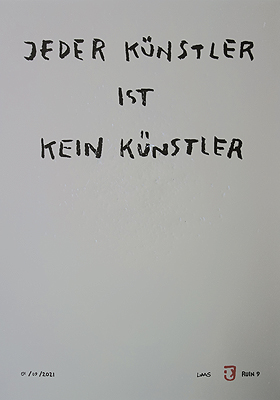 JEDER KÜNSTLER
IST
KEIN KÜNSTLER
01/09/2021 LAAS RUIN 9